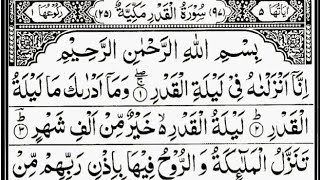 اٰیَاتُهَا ۵ (۹۷) سُوْرَةُ الْقَدْرِ مَكِّیَّةٌ (۲۵) رُكُوْعُهَا ۱
بِسْمِ اللّٰهِ الرَّحْمٰنِ الرَّحِیْمِ
اِنَّاۤ اَنْزَلْنٰهُ فِیْ لَیْلَةِ الْقَدْرِ ۚۖ ۱ وَمَاۤ اَدْرٰىكَ مَا لَیْلَةُ
الْقَدْرِ ؕ ۲ لَیْلَةُ الْقَدْرِ ۙ۬ خَیْرٌ مِّنْ اَلْفِ شَهْرٍ ؕ ۳
تَنَزَّلُ الْمَلٰٓىِٕكَةُ وَ الرُّوْحُ فِیْهَا بِاِذْنِ رَبِّهِمْ مِّنْ